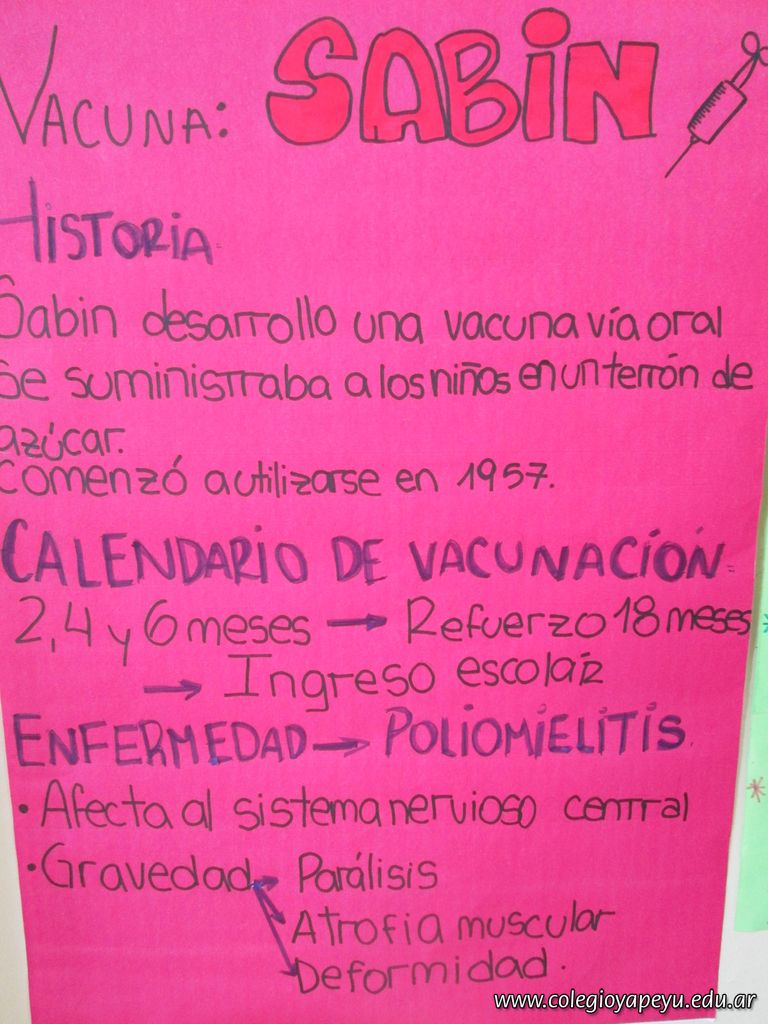 VACUNA: SABIN
HISTORIA
Sabin desarrollo una vacuna vía oral
Se suministraba a los niños en un terrón de
azúcar.
Comenzó a utilizarse en 1957.
CALENDARIO DE VACUNACIÓN
2, 4 y 6 meses → Refuerzo 18 meses
→ Ingreso escolar
ENFERMEDAD → POLIOMIELITIS.
• Afecta al sistema nervioso central
• Gravedad → Parálisis
Atrofia muscular
Deformidad.
www.colegioyapeyu.edu.ar